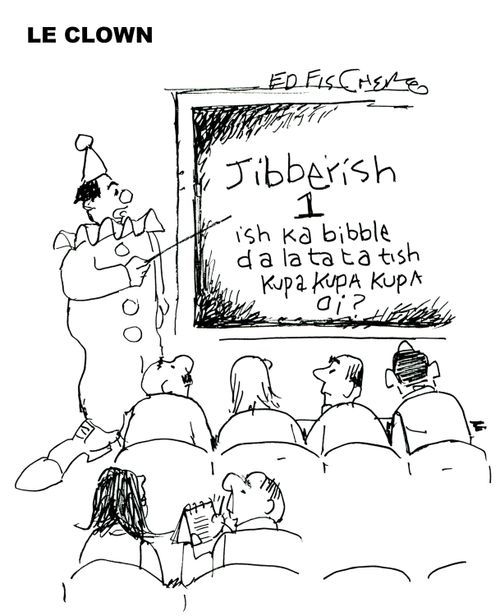 LE CLOWN
ED FISCHER
Jibberish
1
ish ka bibble
da la ta ta tish
kupa kupa kupa
oi?